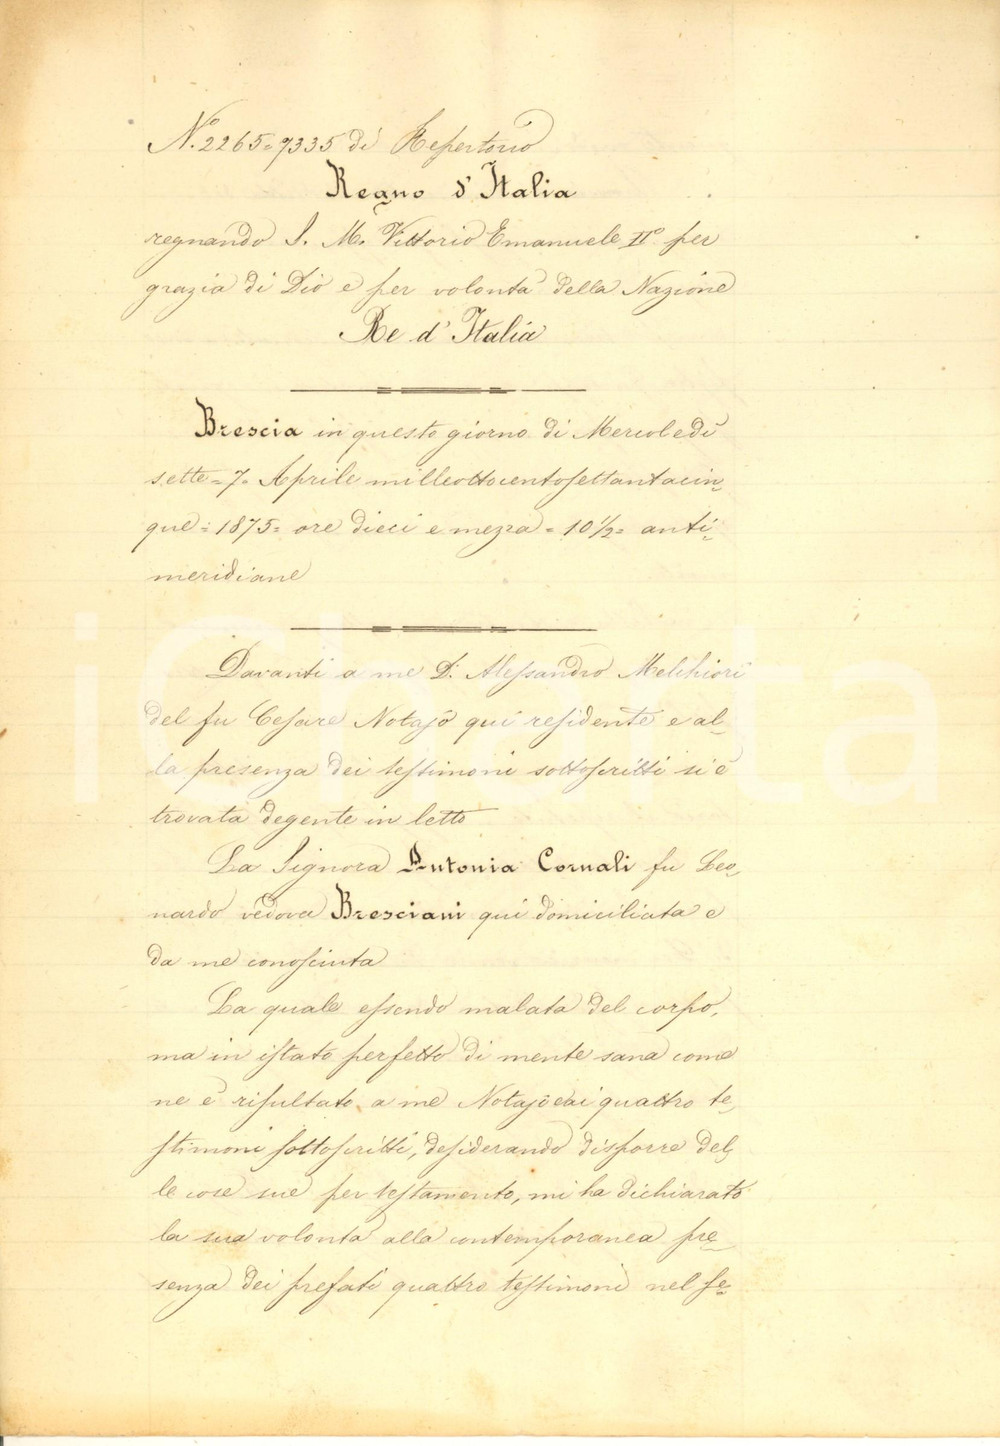 N.º 2265=7335 di Repertorio
Regno d'Italia
regnando S. M. Vittorio Emanuele IIº per
grazia di Dio e per volontà della Nazione
Re d'Italia
Brescia in questo giorno di Mercoledì
sette = 7 = Aprile milleottocentosettantacin=
que = 1875 = ore dieci e mezza = 10½ = anti=
meridiane
Davanti a me Dr. Alessandro Melchiori
del fu Cesare Notajo qui residente e al=
la presenza dei testimoni sottoscritti si è
trovata degente in letto
La Signora Antonia Cornali fu Leo=
nardo vedova Bresciani qui domiciliata e
da me conosciuta
La quale essendo malata del corpo,
ma in istato perfetto di mente sana come
ne è risultato a me Notajo e ai quattro te=
stimoni sottoscritti, desiderando disporre del=
le cose sue per testamento, mi ha dichiarato
la sua volontà alla contemporanea pre=
senza dei prefati quattro testimoni nel se=
iCharta